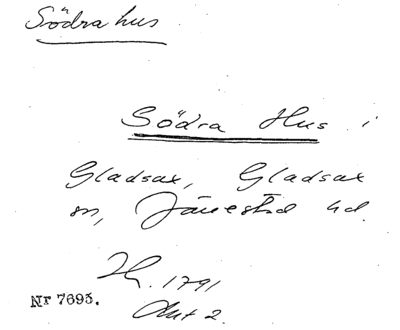 Södra hus
Södra Hus i
Gladsax, Gladsax
sn, Järrestad hd.
H. 1791
Akt 2.
Nr 7695.